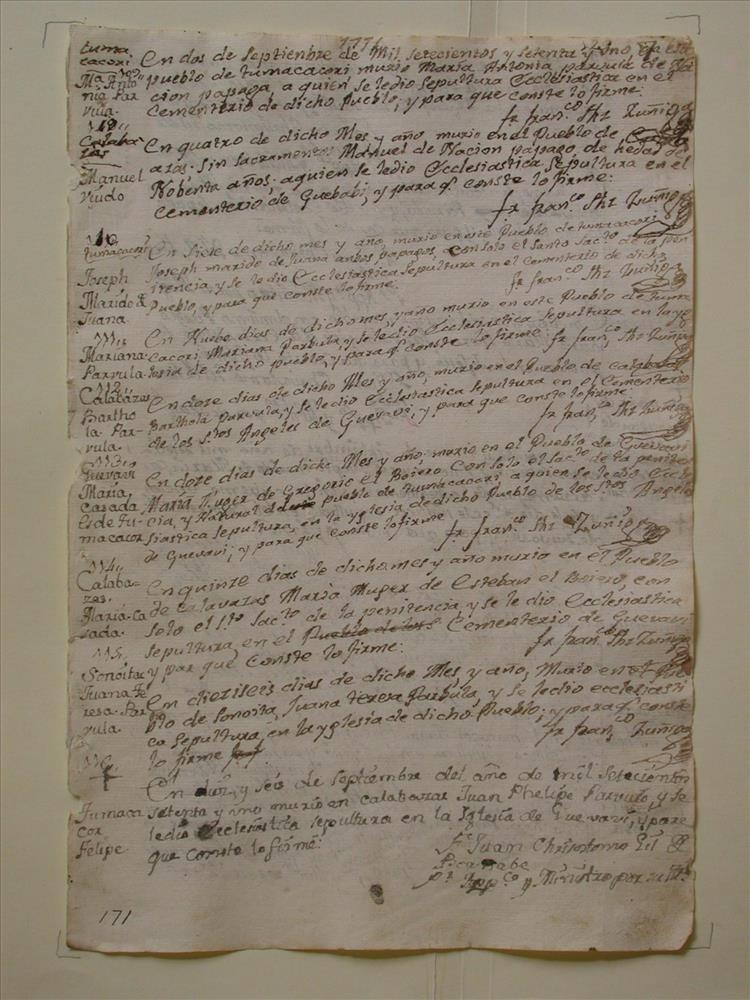 1771
tuma
cacori
Ma. Anto
nia Par
vula.
En dos de Septiembre de Mil setecientos y setenta y uno, en este
pueblo de tumacacori murio Maria Antonia parvula de Na
cion papaga, a quien se le dio Sepultura Ecclesiastica en el
Cementerio de dicho Pueblo, y para que conste lo firme.
fr fran.co Shz Zuñiga
Calaba
zas
Manuel
Viudo
En quatro de dicho Mes y año murio en el Pueblo de
azas. sin sacramentos Manuel de Nacion papago, de hedad de
Nobenta años. a quien se le dio Ecclesiastica Sepultura en el
Cementerio de Guebabi, y para q.e conste lo firme:
fr fran.co Shz Zuñiga
110
tumacacori
Joseph
Marido d
Juana.
En siete de dicho mes y año, murio en este Pueblo de tumacacori
Joseph marido de Juana ambos papagos, con solo el Santo Sacto de la peni
tencia, y se le dio Ecclesiastica Sepultura en el cementerio de dicho
Pueblo, y para que conste lo firme.
fr fran.co Shz Zuñiga
111.
Mariana
Parvula.
En Nuebe dias de dicho mes y año murio en este Pueblo de tuma
cacori, Mariana Parbula, y se le dio Ecclesiastica Sepultura en la yg
lesia de dicho pueblo, y para q.e conste lo firme fr fran.co Shz Zuñiga
112.
Calabazas
Bartho
la Par-
vula.
En doze dias de dicho Mes y año, murio en el Pueblo de calabazas
Barthola Parvula, y se le dio Ecclesiastica Sepultura en el Cementerio
de los S.tos Angeles de Guevavi, y para que conste lo firme.
fr fran.co Shz Zuñiga
113.
Guevavi
Maria
Casada
Es de Tu-
macacor
En doze dias de dicho Mes y año. murio en el Pueblo de Guevavi
Maria Muger de Gregorio el Boiero. Con solo el Sacto de la peniten
cia, y Natural de pueblo de tumacacori a quien se le dio Eccle
siastica Sepultura, en la yglesia de dicho Pueblo de los S.tos Angeles
de Guevavi, y para que conste lo firme
fr fran.co Shz Zuñiga
114.
Calaba=
zas.
Maria. Ca
sada.
En quinze dias de dicho mes y año murio en el Pueblo
de Calavazas Maria Muger de Esteban el Boiero, con
solo el S.to Sacto de la penitencia y se le dio Ecclesiastica
Sepultura, en el Pueblo de los Cementerio de Guevavi
y par que Conste lo firme:
fr fran.co Shz Zuñiga
115.
Sonoita
Juana Te
resa. Par
vula.
En dieziseis dias de dicho Mes y año, Murio en el Pue
blo de Sonoita, Juana teresa Parbula, y se le dio ecclesiasti
ca Sepultura, en la yglesia de dicho Pueblo, y para q.e conste
lo firme
fr fran.co Zuñiga
116
Tumaca
cor
Felipe
En diez, y seis de Septiembre del año de mil Setecientos
setenta y uno murio en calabazas Juan Phelipe Parvulo, y se
le dio Ecclesiastica sepultura en la Iglesia de Guevavi, y para
que conste lo firmé:
Fr. Juan Chrisostomo Gil
Bernabe
Pr. App.co y Ministro por su M.
171